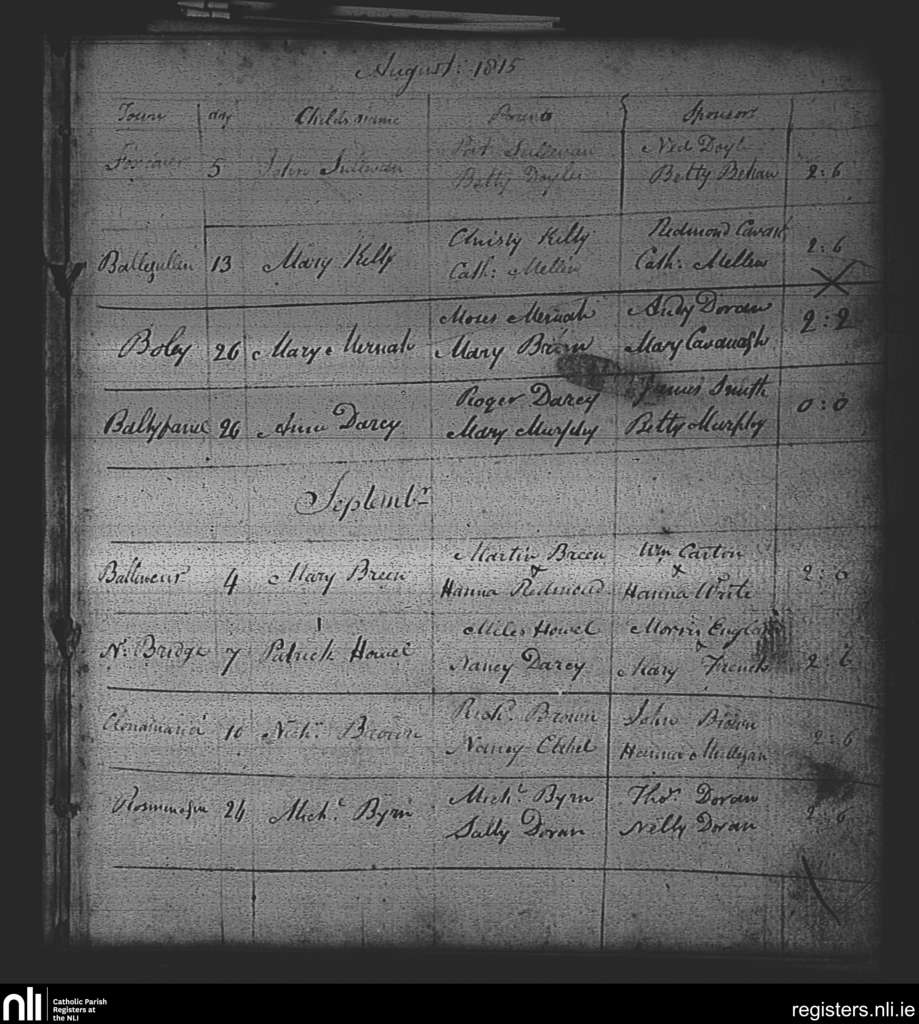 August: 1815
Town day Childs name Parents Sponsors
5 John Sullivan Pat Sullivan Ned Doyle 2:6
Betty Doyle Betty Behan
13 Mary Kelly Christy Kelly Redmond Cavan 2:6
Cath: Mellin Cath: Mellin
Boley 26 Mary Mernah Moses Mernah Andy Doran 2:2
Mary Mary Cavanagh
26 Anne Darcy Roger Darcy James Smith 0:0
Mary Murphy Betty Murphy
Septembr
4 Mary Breen Martin Breen Wm Carton 2:0
& &
Hanna Redmond Hanna Write
N. Bridge 7 Patrick Howel Miles Howel Morris 2:6
&
Nancy Darcy Mary French
10 Nichs. Brown Richd. Brown John Brown 2:6
Nancy Hanna Mulligan
24 Michl. Byrn Michl. Byrn Thos. Doran 2:6
Sally Doran Nelly Doran
nli Catholic Parish
Registers at
the NLI
registers.nli.ie